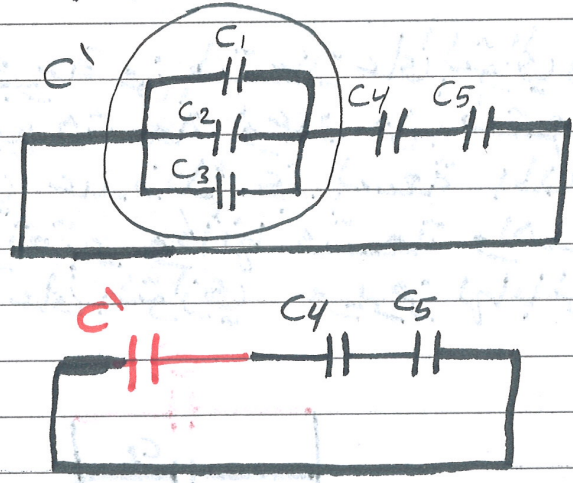 C`
C1
C2
C3
C4
C5
C`
C4
C5